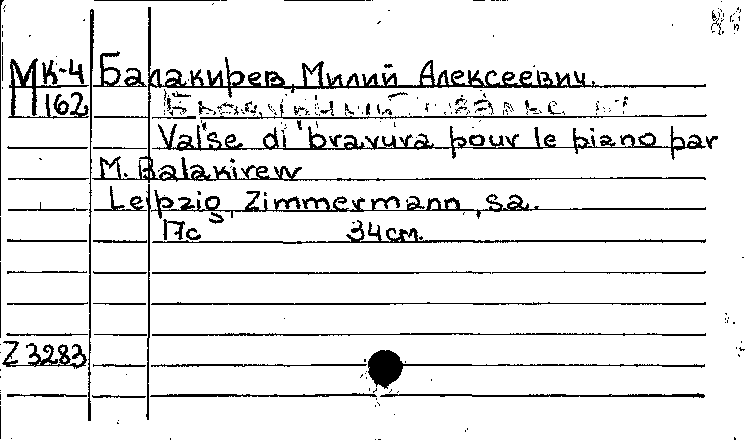 МК-4 Балакирев, Милий Алексеевич.
П162
Valse di bravura pour le piano par
M. Balakirew
Leipzig, Zimmermann, sa.
17с 34см.
Z 3283